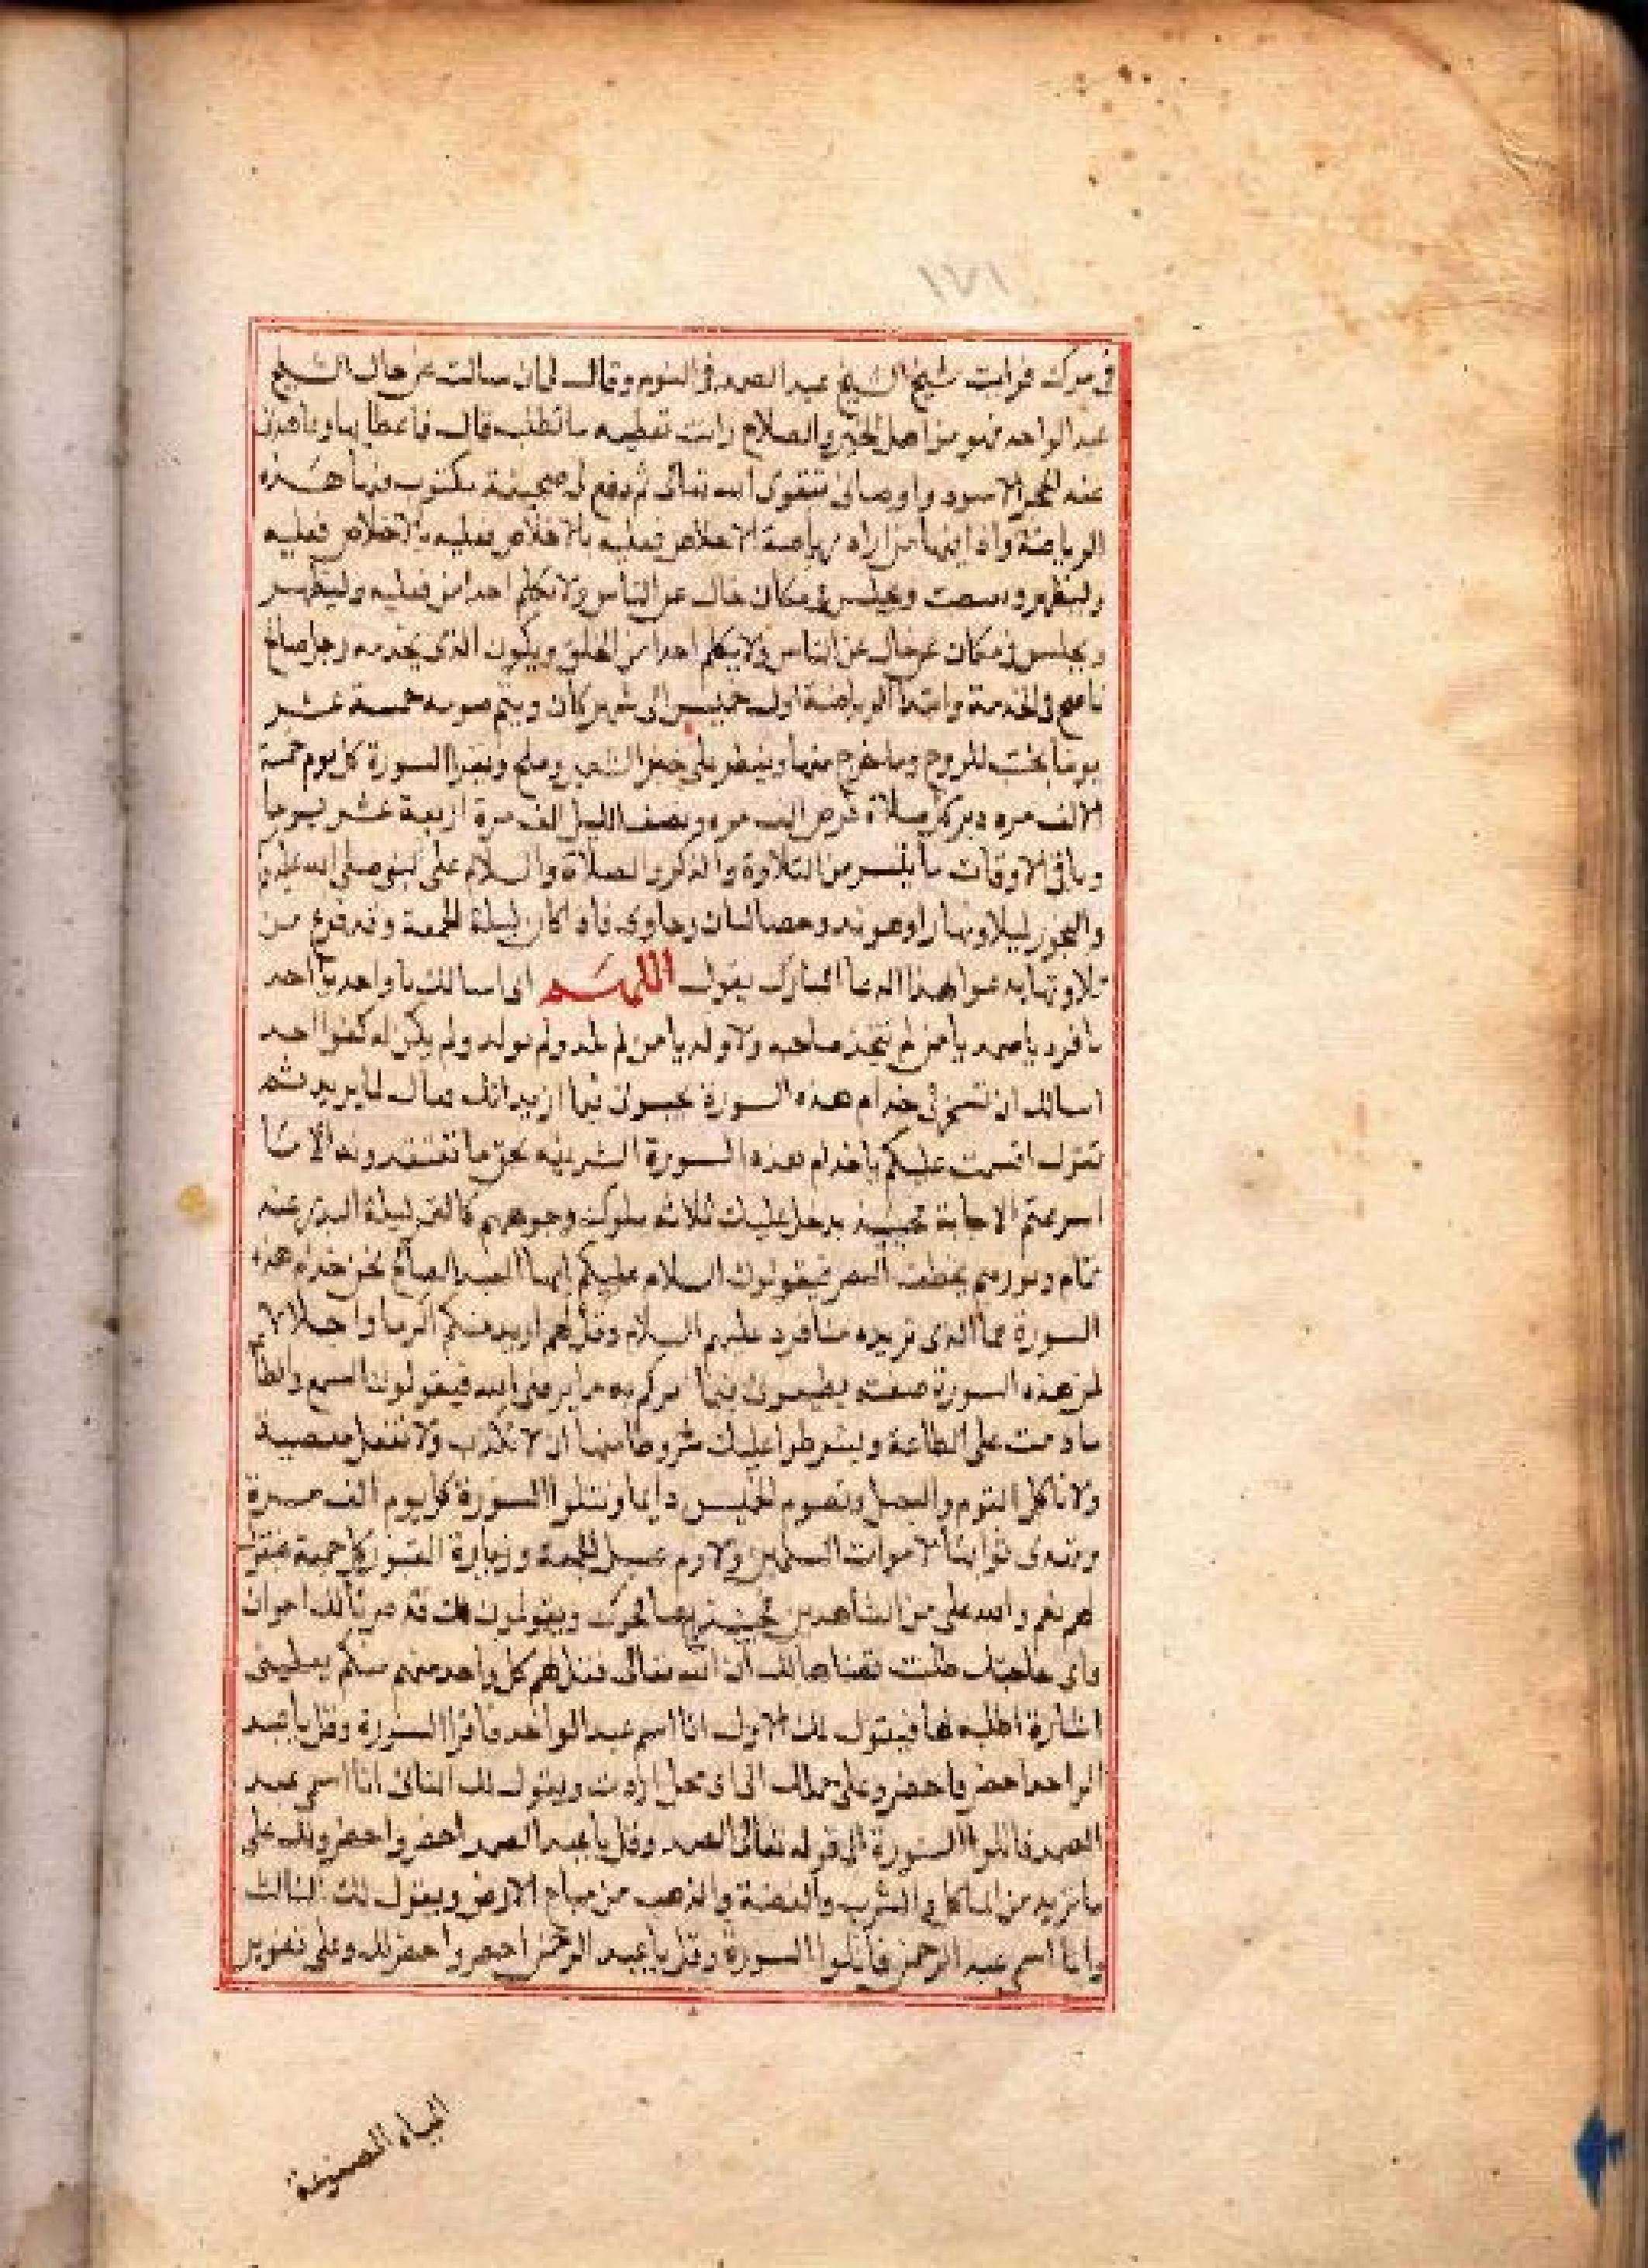 ١٧١
في مرك فرايت شيخ الشيخ عبد الصمد في النوم وقال لي ان سالت عن حال الشيخ
عبد الواحد فهو من اهل الخير والصلاح وانت تعطيه ما تطلب قال فاعطانيها وعاهدن
عند الحجر الاسود واوصاني بتقوى الله تعالى ثم دفع لي صحيفة مكتوب فيها هذه
الرياضة واذا فيها من اراد رياضة الاخلاص فعليه بالاخلاص فعليه بالاخلاص فعليه
وليتطهر و ويجلس في مكان خال عن الناس ولا يكلم احدا من فعليه وليتطهر
ويجلس في مكان خال عن الناس ولا يكلم احدا من الخلق ويكون الذي يخدمه رجل صالح
ناصح في الخدمة وابتدا الرياضة اول خميس اي شهر كان ويتم صومه خمسة عشر
يوما للروح وما خرج منها ويفطر على خبز الشعير وملح ويقرا السورة كل يوم خمسة
الاف مره دبر كل صلاة فرض الف مره ونصف الليل الف مرة اربعة عشر يوما
وباقي الاوقات ما تيسر من التلاوة والذكر والصلاة والسلام على النبي صلى الله عليه
والبخور ليلا ونهارا وهو ند وحصالبان وجاوي فاذا كان ليلة الجمعة وقد فرغ من
تلاوتها يدعوا بهذا الدعا المبارك يقول اللهم اني اسالك يا واحد يا احد
يا فرد يا صمد يا من لم يتخذ صاحبه ولا ولد يا من لم يلد ولم يولد ولم يكن له كفوا احد
اسالك ان تسخر لي خدام هذه السورة يجيبوني فيما اريد انك فعال لما يريد ثم
تقول اقسمت عليكم يا خدام هذه السورة الشريفه بحق ما تعتقدونه الا ما
اسرعتم الاجابة فحينئذ يدخل عليك ثلاثه ملوك وجوههم كالقمر ليلة البدر عند
تمام ونورهم يخطف البصر فيقولون السلام عليكم ايها العبد الصالح نحن خدام هذه
السورة فما الذي تريده منا فرد عليهم السلام وقل لهم اريد منكم اكراما واجلالا
لمن هذه السورة صفته يطيعون فيما امركم به مما يرضي الله فيقولون السمع والطا
ما دمت على الطاعة ويشرطوا عليك شروطا منها ان لا تكذب ولا تفعل معصية
ولا تاكل الثوم والبصل وتصوم الخميس دايما وتتلوا السورة كل يوم الف مرة
وتهدى ثوابها لاموات المسلمين ولازم غسل الجمعة وزيارة القبور كل جمعة فتقل
لهم نعم والله على من الشاهدين فحينئذ يصافحوك ويقولون لك قد صرنا لك اخوان
واي حاجتك طلبت قضيناها لك ان الله تعالى فقل لهم كل واحد منهم منكم يعطيني
اشارة اطلبه بها فيقول لك الاول انا اسم عبد الواحد فاقرا السورة وقل يا عبد
الواحد احضر فاحضر وعلي حملك الى اي محل اردت ويقول لك الثاني انا اسمي عبد
الصمد فاتلوا السورة الى قوله تعالى الصمد وقل يا عبد الصمد احضر واحضر ولك علي
ما تريد من الماكل والشرب والفضة والذهب من مباح الارض ويقول لك الثالث
وانا اسمي عبد الرحمن فاتلوا السورة وقل يا عبد الرحمن احضر واحضر لك وعلى تغوير
المياه